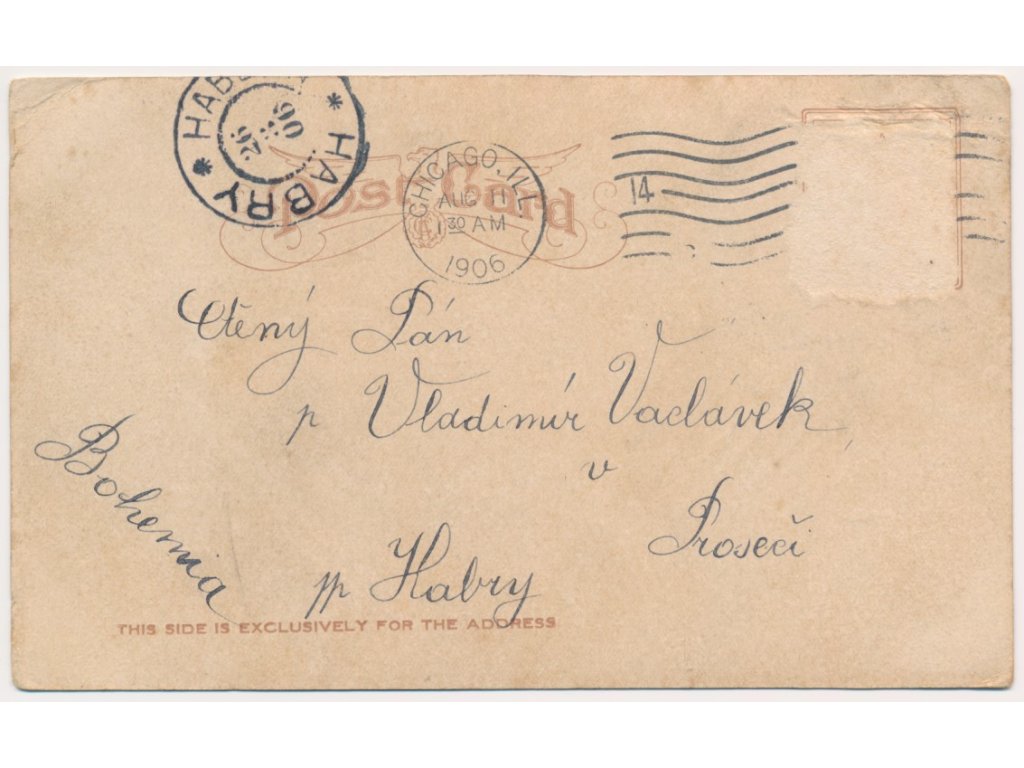 * HABRY *
26
8
06
Post Card
CHICAGO, ILL.
AUG 11
1 30 AM
1906
14
Ctěný Pán
p Vladimír Vaclávek
v
Proseči
pp Habry
Bohemia
THIS SIDE IS EXCLUSIVELY FOR THE ADDRESS